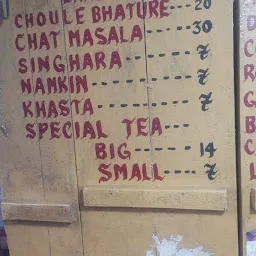 CHOULE BHATURE--- 20
CHAT MASALA---- 30
SINGHARA---- 7
NAMKIN---- 7
KHASTA----- 7
SPECIAL TEA----
BIG----- 14
SMALL---- 7